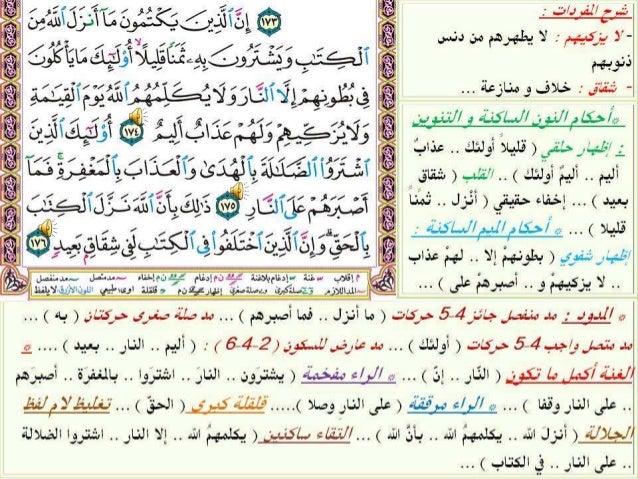 شرح المفردات :
- لا يزكيهم : لا يطهرهم من دنس
ذنوبهم
- شقاق : خلاف و منازعة ...
*أحكام النون الساكنة و التنوين
: إظهار حلقي ( قليلاً أولئك .. عذابٌ
أليم .. أليمٌ أولئك ) .. القلب ( شقاق
بعيد ) ... إخفاء حقيقي ( أنزل .. ثمناً
قليلا ) ... * أحكام الميم الساكنة :
إظهار شفوي ( بطونهم إلا .. لهم عذاب
.. لا يزكيهم و .. أصبرهم على ) ...
١٧٣ إِنَّ ٱلَّذِينَ يَكْتُمُونَ مَآ أَنزَلَ ٱللَّهُ مِنَ
ٱلْكِتَٰبِ وَيَشْتَرُونَ بِهِۦ ثَمَنًا قَلِيلًا أُو۟لَٰٓئِكَ مَا يَأْكُلُونَ
فِى بُطُونِهِمْ إِلَّا ٱلنَّارَ وَلَا يُكَلِّمُهُمُ ٱللَّهُ يَوْمَ ٱلْقِيَٰمَةِ
وَلَا يُزَكِّيهِمْ وَلَهُمْ عَذَابٌ أَلِيمٌ ١٧٤ أُو۟لَٰٓئِكَ ٱلَّذِينَ
ٱشْتَرَوُا۟ ٱلضَّلَٰلَةَ بِٱلْهُدَىٰ وَٱلْعَذَابَ بِٱلْمَغْفِرَةِ ۚ فَمَآ
أَصْبَرَهُمْ عَلَى ٱلنَّارِ ١٧٥ ذَٰلِكَ بِأَنَّ ٱللَّهَ نَزَّلَ ٱلْكِتَٰبَ
بِٱلْحَقِّ ۗ وَإِنَّ ٱلَّذِينَ ٱخْتَلَفُوا۟ فِى ٱلْكِتَٰبِ لَفِى شِقَاقٍۭ بَعِيدٍ ١٧٦
* المدود : مد منفصل جائز 4-5 حركات ( ما أنزل .. فما أصبرهم ) ... مد صلة صغرى حركتان ( به ) ...
مد متصل واجب 4-5 حركات ( أولئك ) ... مد عارض للسكون ( 2-4-6 ) : ( أليم .. النار .. بعيد ) .... *
الغنة أكمل ما تكون ( النّار .. إنّ ) ... * الراء مفخمة ( يشترون .. النارَ .. اشترَوا .. بالمغفرَة .. أصبرَهم
.. على النار وقفا ) ... * الراء مرققة ( على النارِ وصلا ) ..... قلقلة كبرى ( الحقّ ) ... تغليظ لام لفظ
الجلالة ( أنزلَ الله .. يكلمهمُ الله .. بأنَّ الله ) ... التقاء ساكنين ( يكلمهمُ الله .. إلا النار .. اشتروا الضلالة
.. على النار .. في الكتاب ) ...